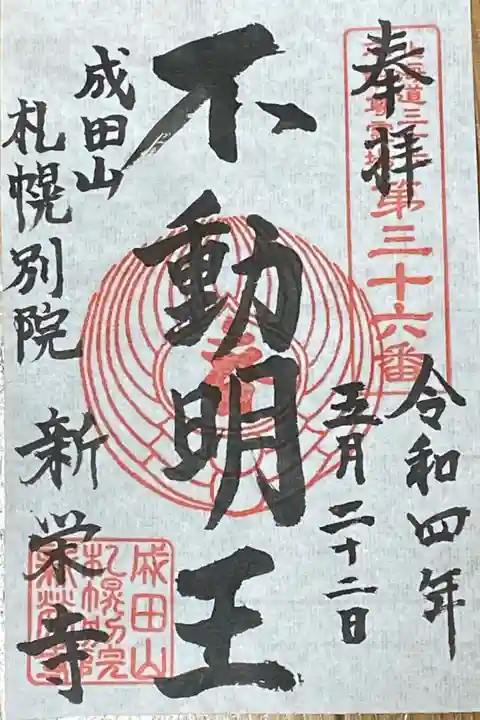 奉拝
第三十六番
令和四年
五月二十二日
不動明王
成田山
札幌別院
新栄寺
成田山
札幌別院
新栄寺